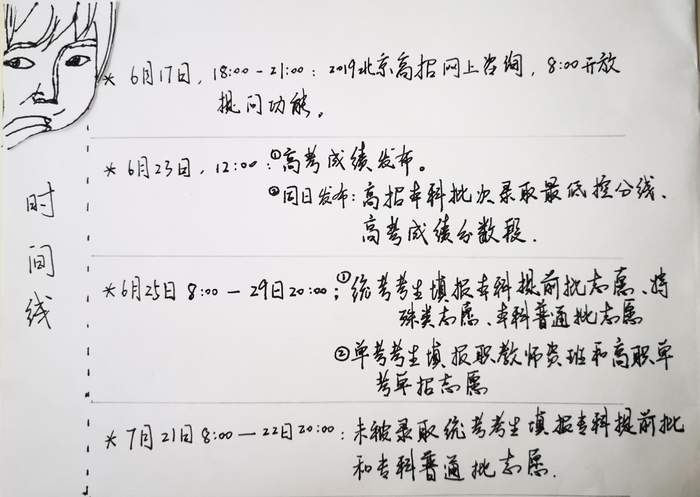 时间线
* 6月17日，18:00-21:00：2019北京高招网上咨询，8:00开放
提问功能。
* 6月23日，12:00：①高考成绩发布。
②同日发布：高招本科批次录取最低控分线、
高考成绩分数段.
* 6月25日 8:00 — 29日20:00；①统考考生填报本科提前批志愿、特
殊类志愿、本科普通批志愿
②单考考生填报职教师资班和高职单
考单招志愿
* 7月21日8:00—22日20:00：未被录取统考考生填报专科提前批
和专科普通批志愿.